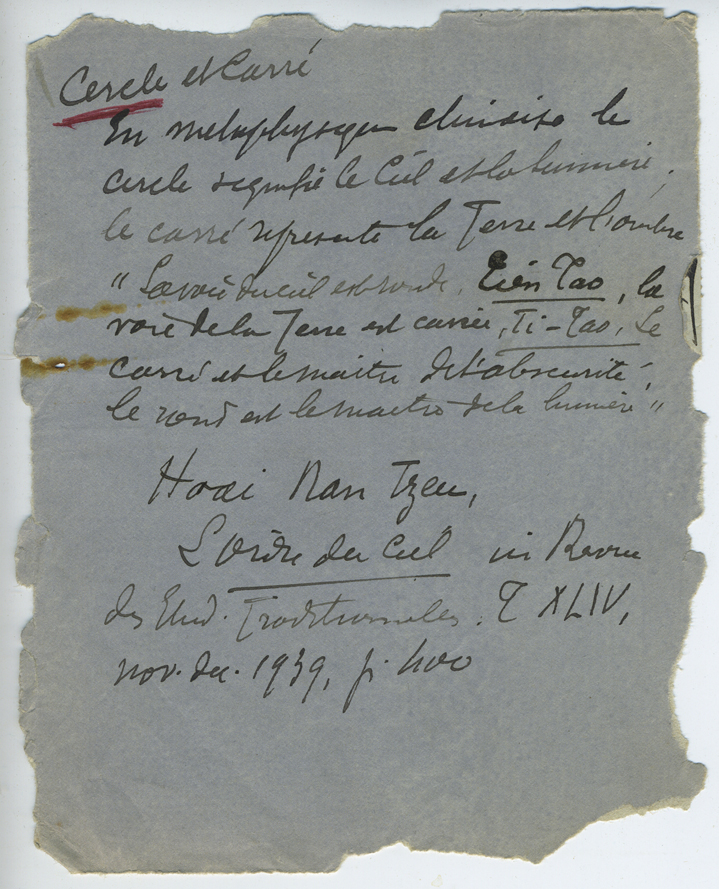 Cercle et Carré
En metaphysique chinoise le
cercle signifie le Ciel et la lumière,
le carré represente la Terre et l'ombre
"La voie du ciel est ronde, Tien Tao, la
voie de la Terre est carrée, Ti-Tao. Le
carré est le maitre de l'obscurité,
le rond est le maitre de la lumière"
Hoai Nan Tzeu,
L'Ordre du Ciel in Revue
des Etud. Traditionnelles. T XLIV,
nov. dec. 1939, p. 400